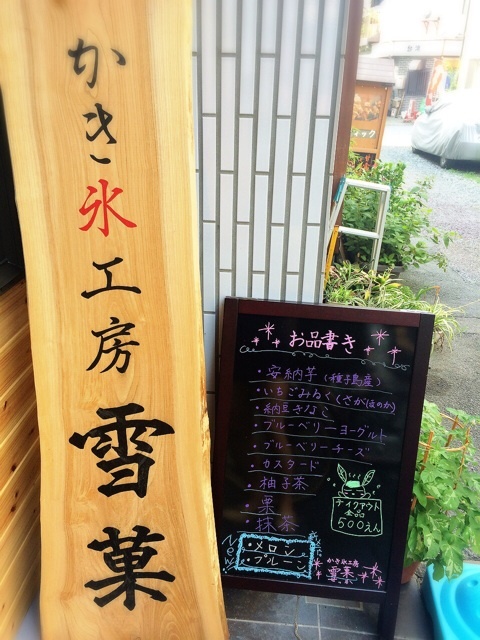 かき氷工房雪菓
お品書き
・安納芋(種子島産)
・いちごみるく(さがほのか)
・納豆きなこ
・ブルーベリーヨーグルト
・ブルーベリーチーズ
・カスタード
・柚子茶
・栗
・抹茶
New
・メロン
・プルーン
テイクアウト
全品
500えん
かき氷工房
雪菓